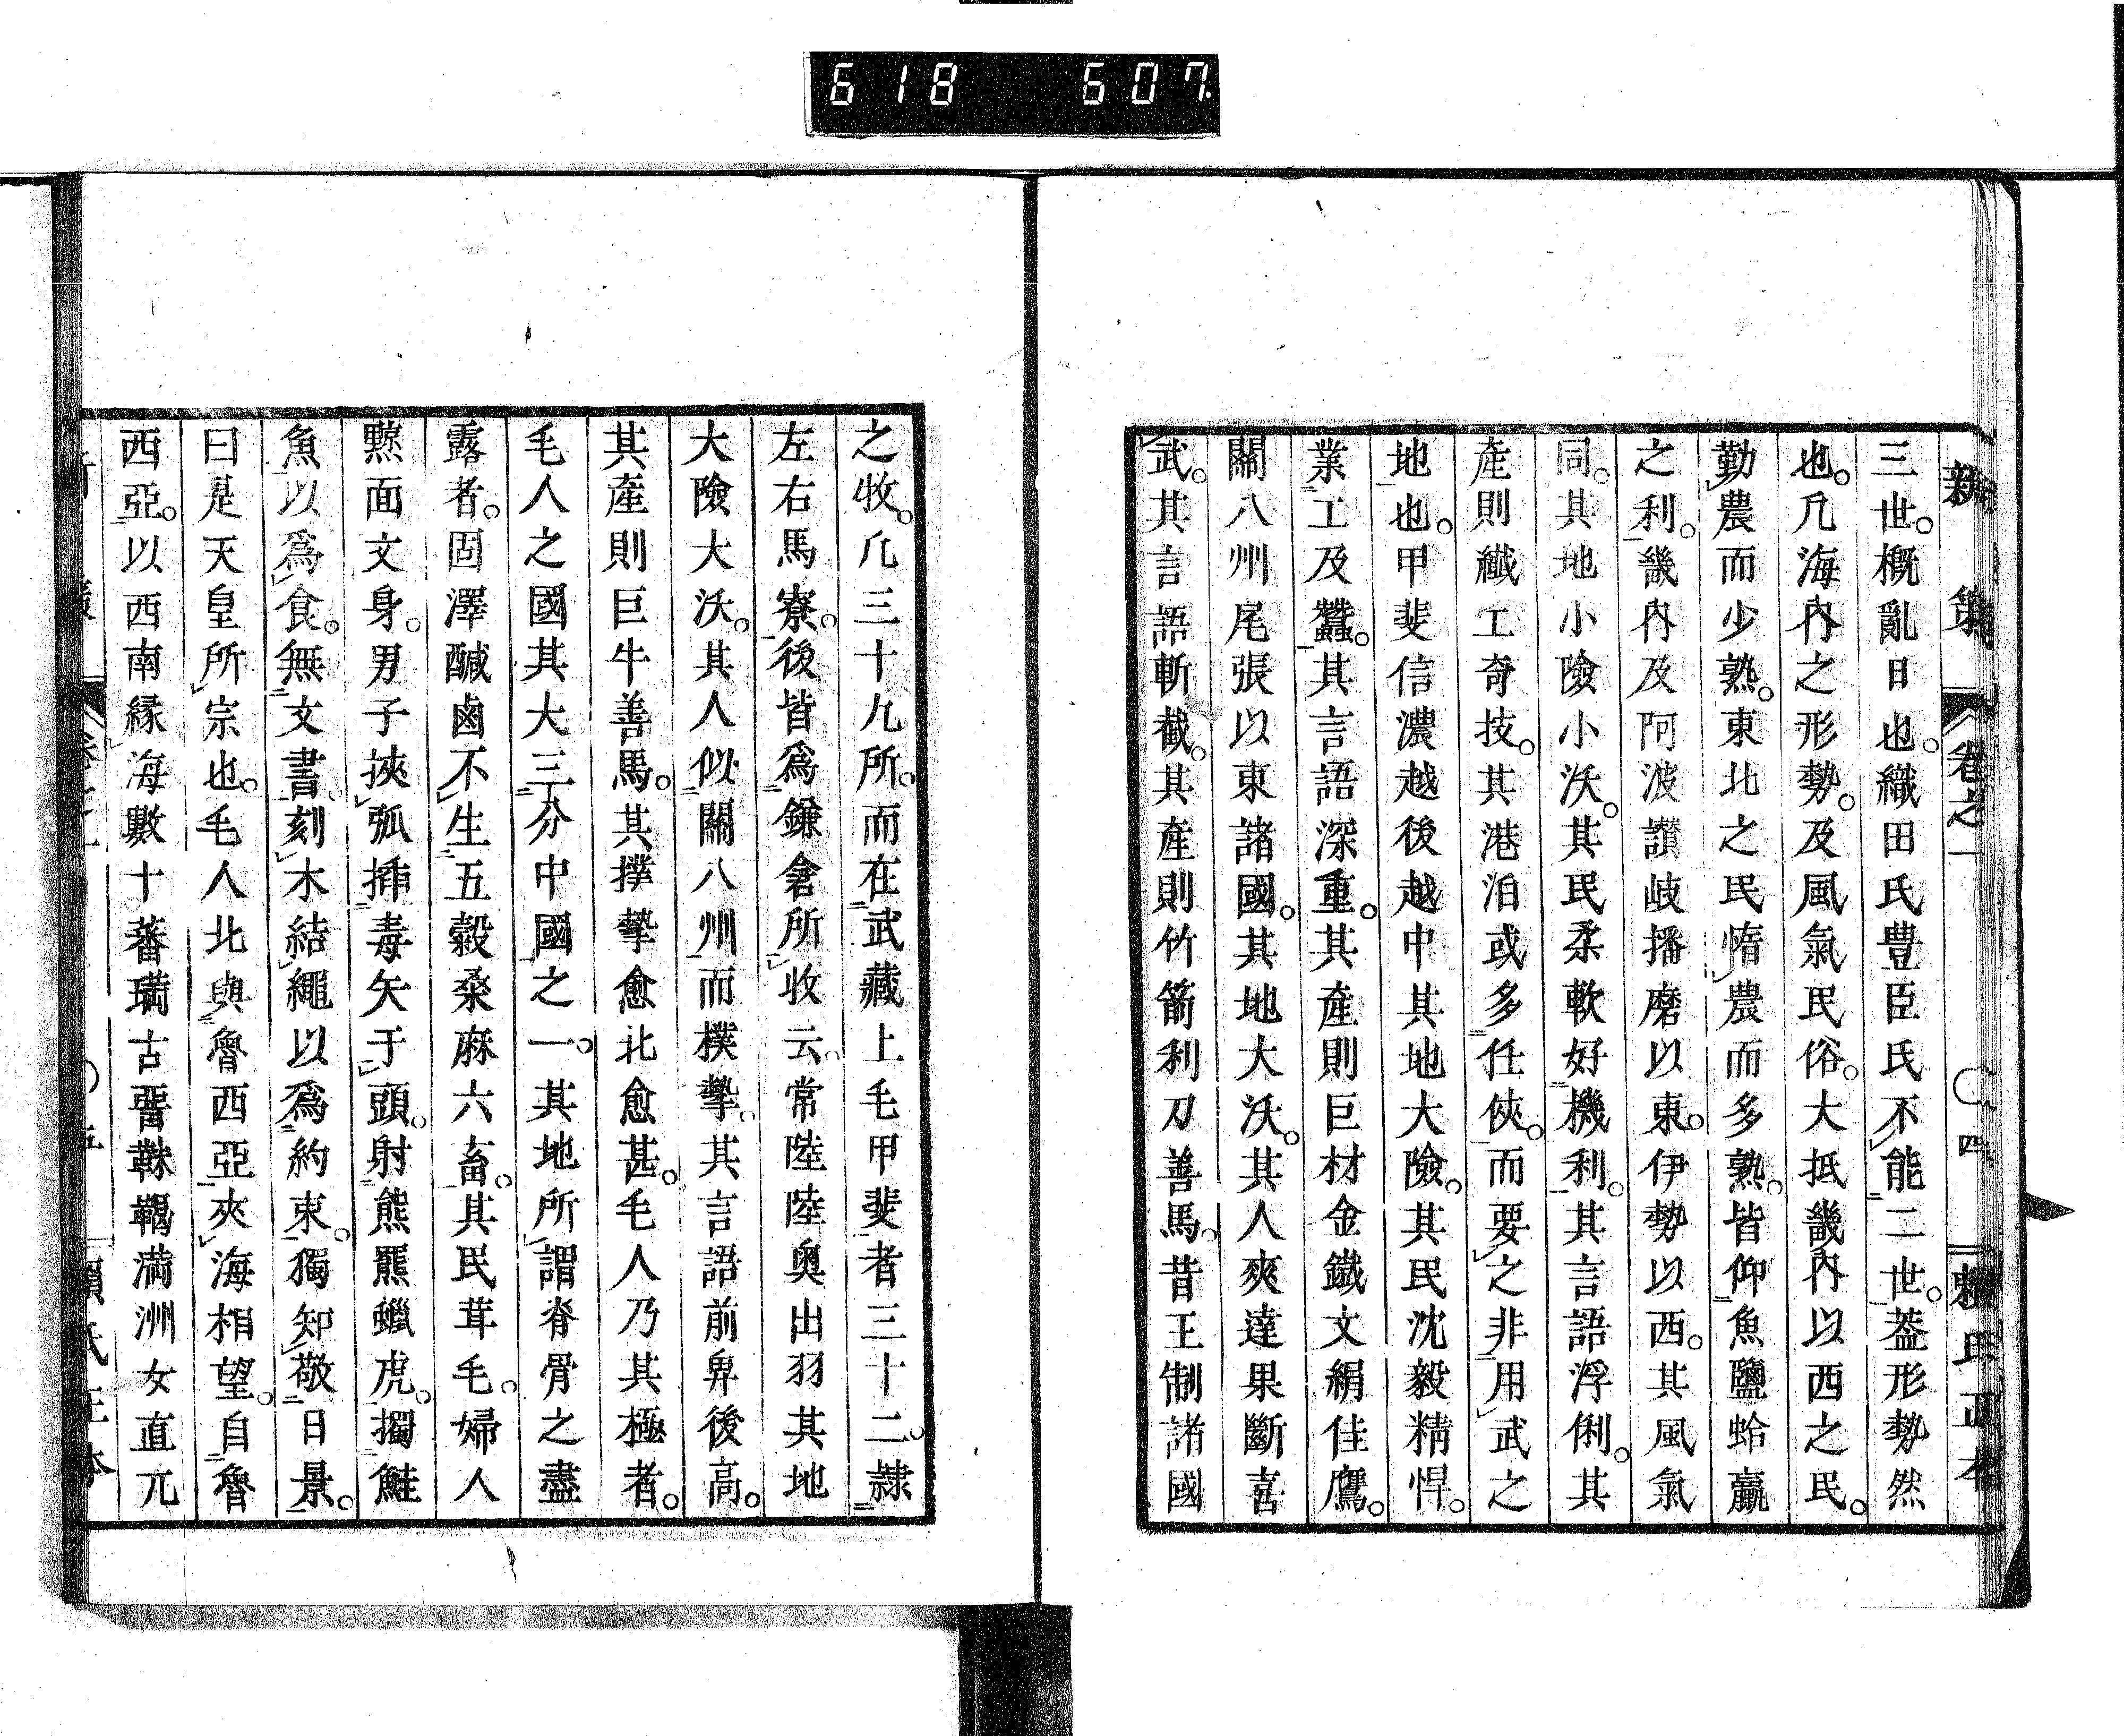 618 607.
新策 卷之一 〇四 賴氏正本
三世。概亂日也。織田氏豊臣氏不能二世。葢形勢然
也。凡海內之形勢。及風氣民俗。大抵畿內以西之民。
勤農而少熟。東北之民惰農而多熟。皆仰魚鹽蛤蠃
之利。畿內及阿波讃岐播磨以東。伊勢以西。其風氣
同。其地小險小沃。其民柔軟好機利。其言語浮俐。其
產則纎工奇技。其港泊或多任俠。而要之非用武之
地也。甲斐信濃越後越中其地大險。其民沈毅精悍。
業工及蠶。其言語深重。其產則巨材金鐵文絹佳鷹。
關八州尾張以東諸國。其地大沃。其人爽達果斷喜
武。其言語斬截。其產則竹箭利刀善馬。昔王制諸國
之牧。凡三十九所。而在武藏上毛甲斐者三十二。隷
左右馬寮。後皆爲鎌倉所收云。常陸陸奥出羽其地
大險大沃。其人似關八州而樸摯。其言語前卑後高。
其產則巨牛善馬。其撲摯愈北愈甚。毛人乃其極者。
毛人之國其大三分中國之一。其地所謂脊骨之盡
露者。固澤醎鹵不生五糓桒麻六畜。其民茸毛。婦人
黥面文身。男子挾弧揷毒矢于頭。射熊羆蠟虎。擉鮭
魚以爲食。無文書刻木結繩以爲約束。獨知敬日景。
曰是天皇所宗也。毛人北與魯西亞夾海相望。自魯
西亞。以西南縁海數十蕃瓋古習靺鞨満洲女直兀